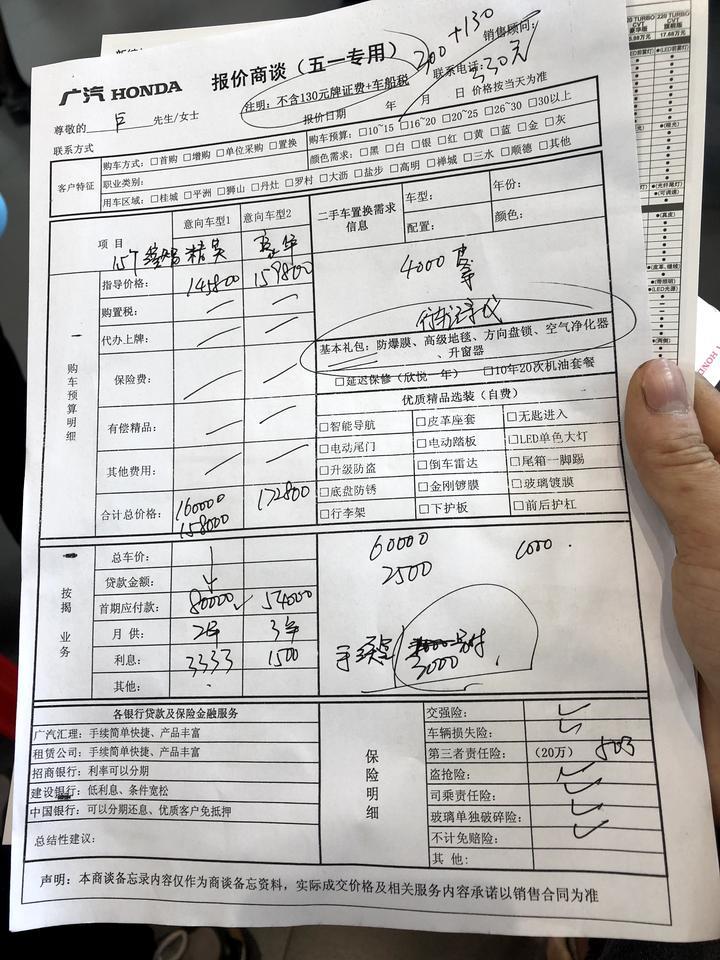 广汽 HONDA 报价商谈（五一专用）
200+130
330元
销售顾问：
联系电话：
注明：不含130元牌证费+车船税
报价日期 年 月 日 价格按当天为准
尊敬的 巨 先生/女士
联系方式
客户特征
购车方式：□首购 □增购 □单位采购 □置换
购车预算：□10~15 □16~20 □20~25 □26~30 □30以上
职业类别：
颜色需求：□黑 □白 □银 □红 □黄 □蓝 □金 □灰
用车区域：□桂城 □平洲 □狮山 □丹灶 □罗村 □大沥 □盐步 □高明 □禅城 □三水 □顺德 □其他
项目 意向车型1 意向车型2
精英 豪华
二手车置换需求信息
车型： 年份：
配置： 颜色：
一 购车预算明细
指导价格： 145800 159800
购置税：
代办上牌：
保险费：
有偿精品：
其他费用：
合计总价格： 160000 172800
158000
4000
行车记录仪
基本礼包：防爆膜、高级地毯、方向盘锁、空气净化器
、升窗器
□延迟保修（欣悦一年） □10年20次机油套餐
优质精品选装（自费）
□智能导航 □皮革座套 □无匙进入
□电动尾门 □电动踏板 □LED单色大灯
□升级防盗 □倒车雷达 □尾箱一脚踢
□底盘防锈 □金刚镀膜 □玻璃镀膜
□行李架 □下护板 □前后护杠
按揭业务
总车价：
贷款金额：
首期应付款： 80000 54000
月供： 2年 3年
利息： 3333 1500
其他：
60000 1000
2500
3000
各银行贷款及保险金融服务
广汽汇理：手续简单快捷、产品丰富
租赁公司：手续简单快捷、产品丰富
招商银行：利率可以分期
建设银行：低利息、条件宽松
中国银行：可以分期还息、优质客户免抵押
总结性建议：
保险明细
交强险：
车辆损失险：
第三者责任险： （20万） 503
盗抢险：
司乘责任险：
玻璃单独破碎险：
不计免赔险：
其 他：
声明：本商谈备忘录内容仅作为商谈备忘资料，实际成交价格及相关服务内容承诺以销售合同为准